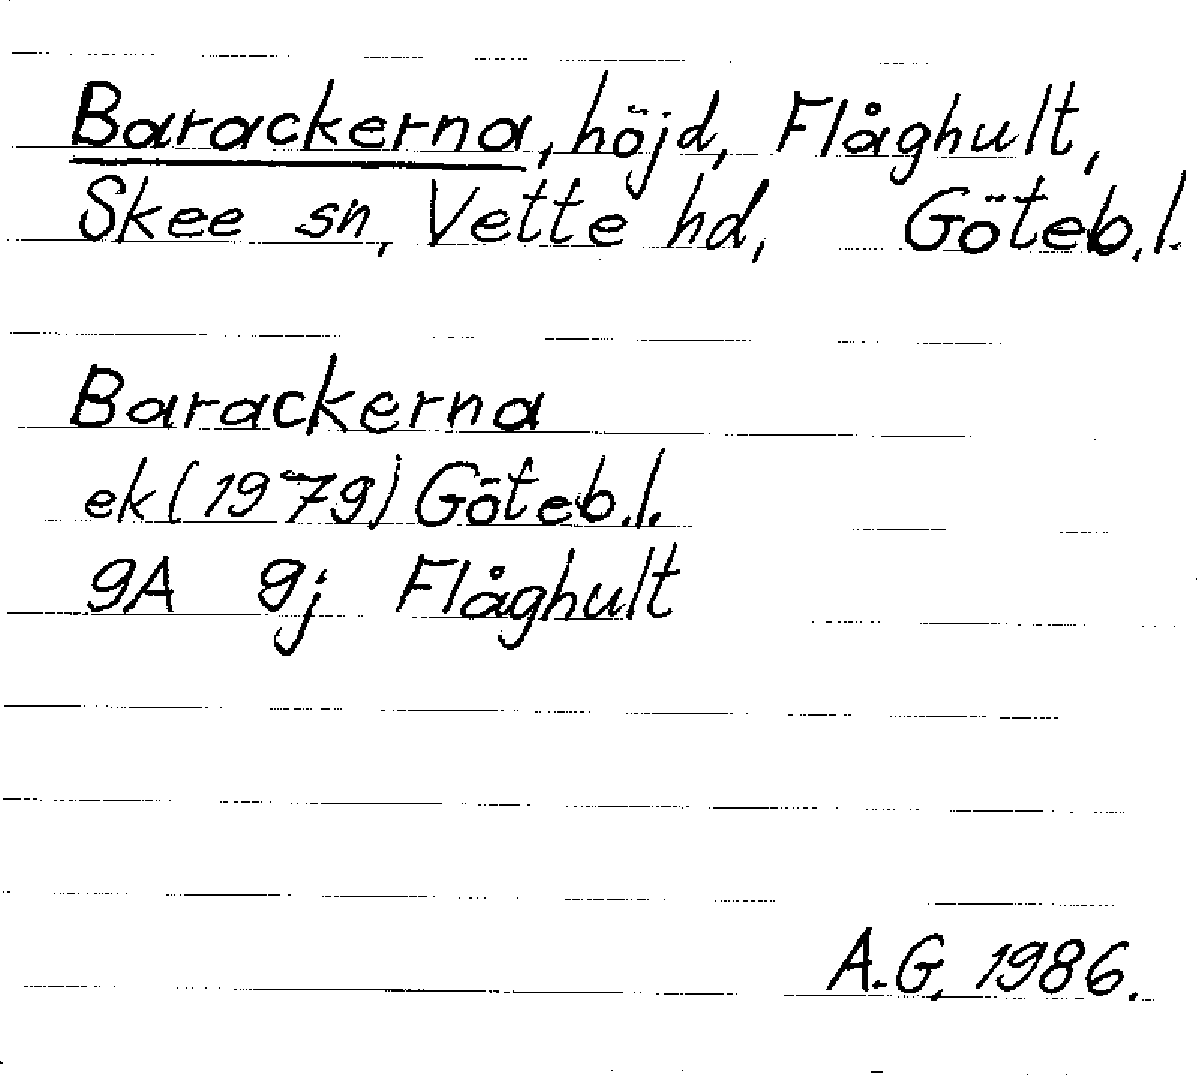 Barackerna, höjd, Flåghult,
Skee sn, Vette hd, Göteb.l.
Barackerna
ek (1979) Göteb.l.
9A 9j Flåghult
A.G, 1986.